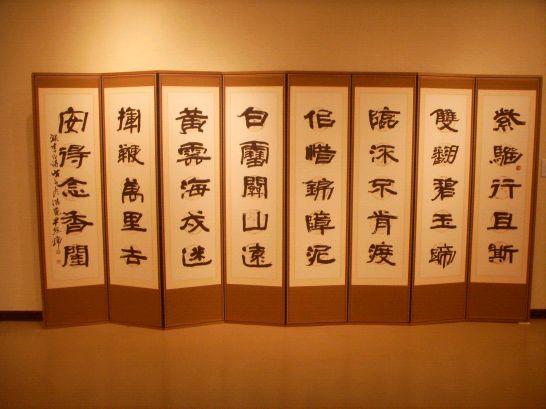 紫騮行且斯
雙翻碧玉蹄
臨流不肯渡
佀惜錦障泥
白雪關山遠
黃雲海戍迷
揮鞭萬里去
安得念香閨